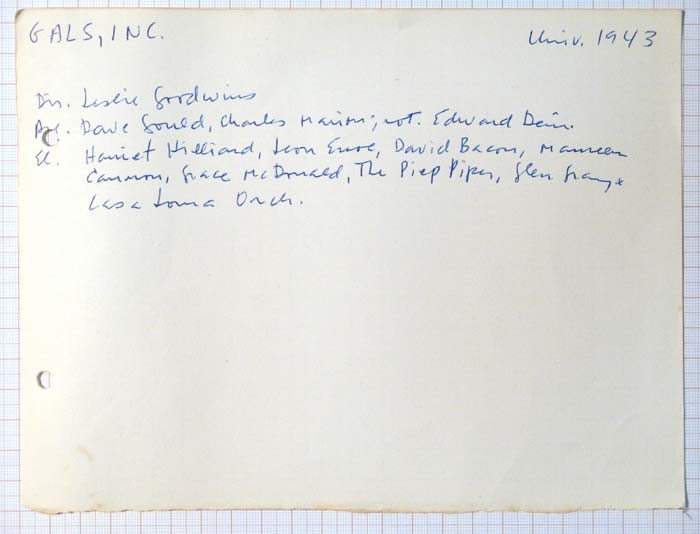 GALS, INC. Univ. 1943
Dir. Leslie Goodwins
Dave Gould, Charles Marion; not. Edward Dein.
El. Harriet Hilliard, Leon Errol, David Bacon, Maureen
Cannon, Grace McDonald, The Piep Pipers, Glen Gray &
Casa Loma Orch.